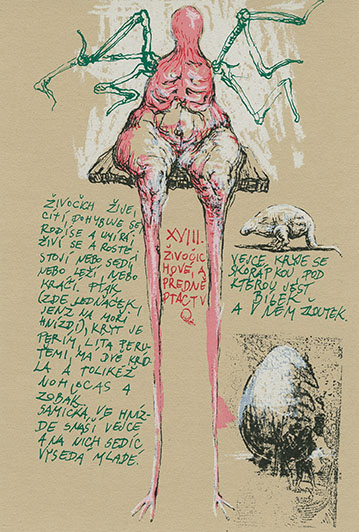 ŽIVOČICH ŽIJE,
CÍTÍ, POHYBUJE SE
RODÍ SE A UMÍRÁ
ŽIVÍ SE A ROSTE
STOJÍ NEBO SEDÍ
NEBO LEŽÍ, NEBO
KRÁČÍ. PTÁK
(ZDE LEDŇÁČEK,
JENŽ NA MOŘI
HNÍZDÍ), KRYT JE
PEŘÍM, LÍTÁ PERU-
TĚMI, MÁ DVĚ KŘÍ-
LA A TOLIKÉŽ
NOH, OCAS A
ZOBÁK.
SAMIČKA VE HNÍZ-
DĚ SNÁŠÍ VEJCE
A NA NICH SEDÍC
VYSEDÁ MLÁDĚ.
XVIII.
ŽIVOČIC
HOVÉ, A
PŘEDNĚ
PTACTV
VEJCE KRYJE SE
SKOŘÁPKOU, POD
KTEROU JEST
BÍLEK
A V NĚM ŽLOUTEK.